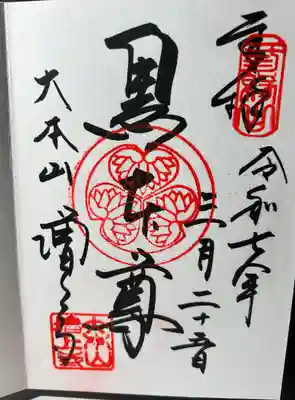 奉拝
令和七年
三月二十日
黒本尊
大本山 増上寺